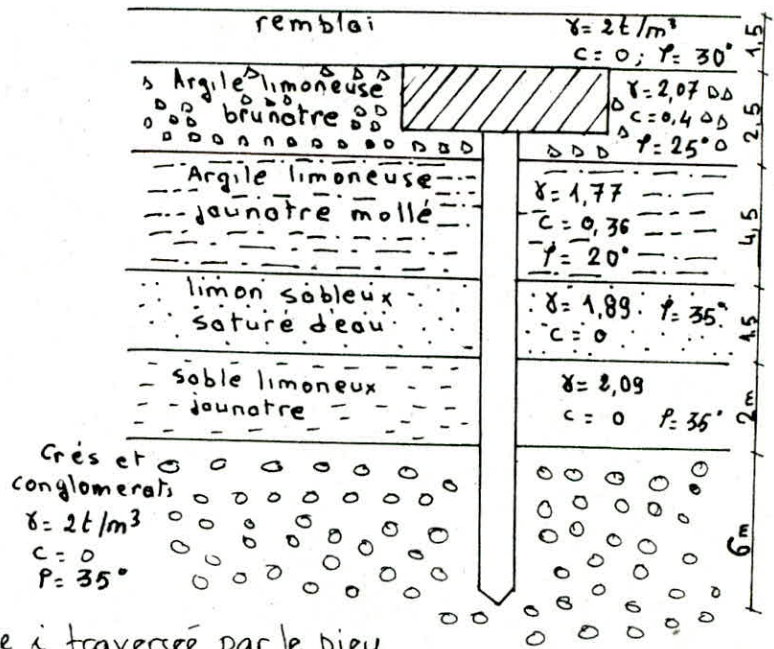 remblai
γ = 2t/m³
c = 0 ; φ = 30°
1,5
Argile limoneuse
brunatre
γ = 2,07
c = 0,4
φ = 25°
2,5
Argile limoneuse
jaunatre mollé
γ = 1,77
c = 0,36
φ = 20°
4,5
limon sableux
saturé d'eau
γ = 1,89 φ = 35°
c = 0
1,5
sable limoneux
jaunatre
γ = 2,09
c = 0 φ = 35°
2m
Grés et
conglomerats
γ = 2t/m³
c = 0
φ = 35°
6m
e i traversée par le pieu